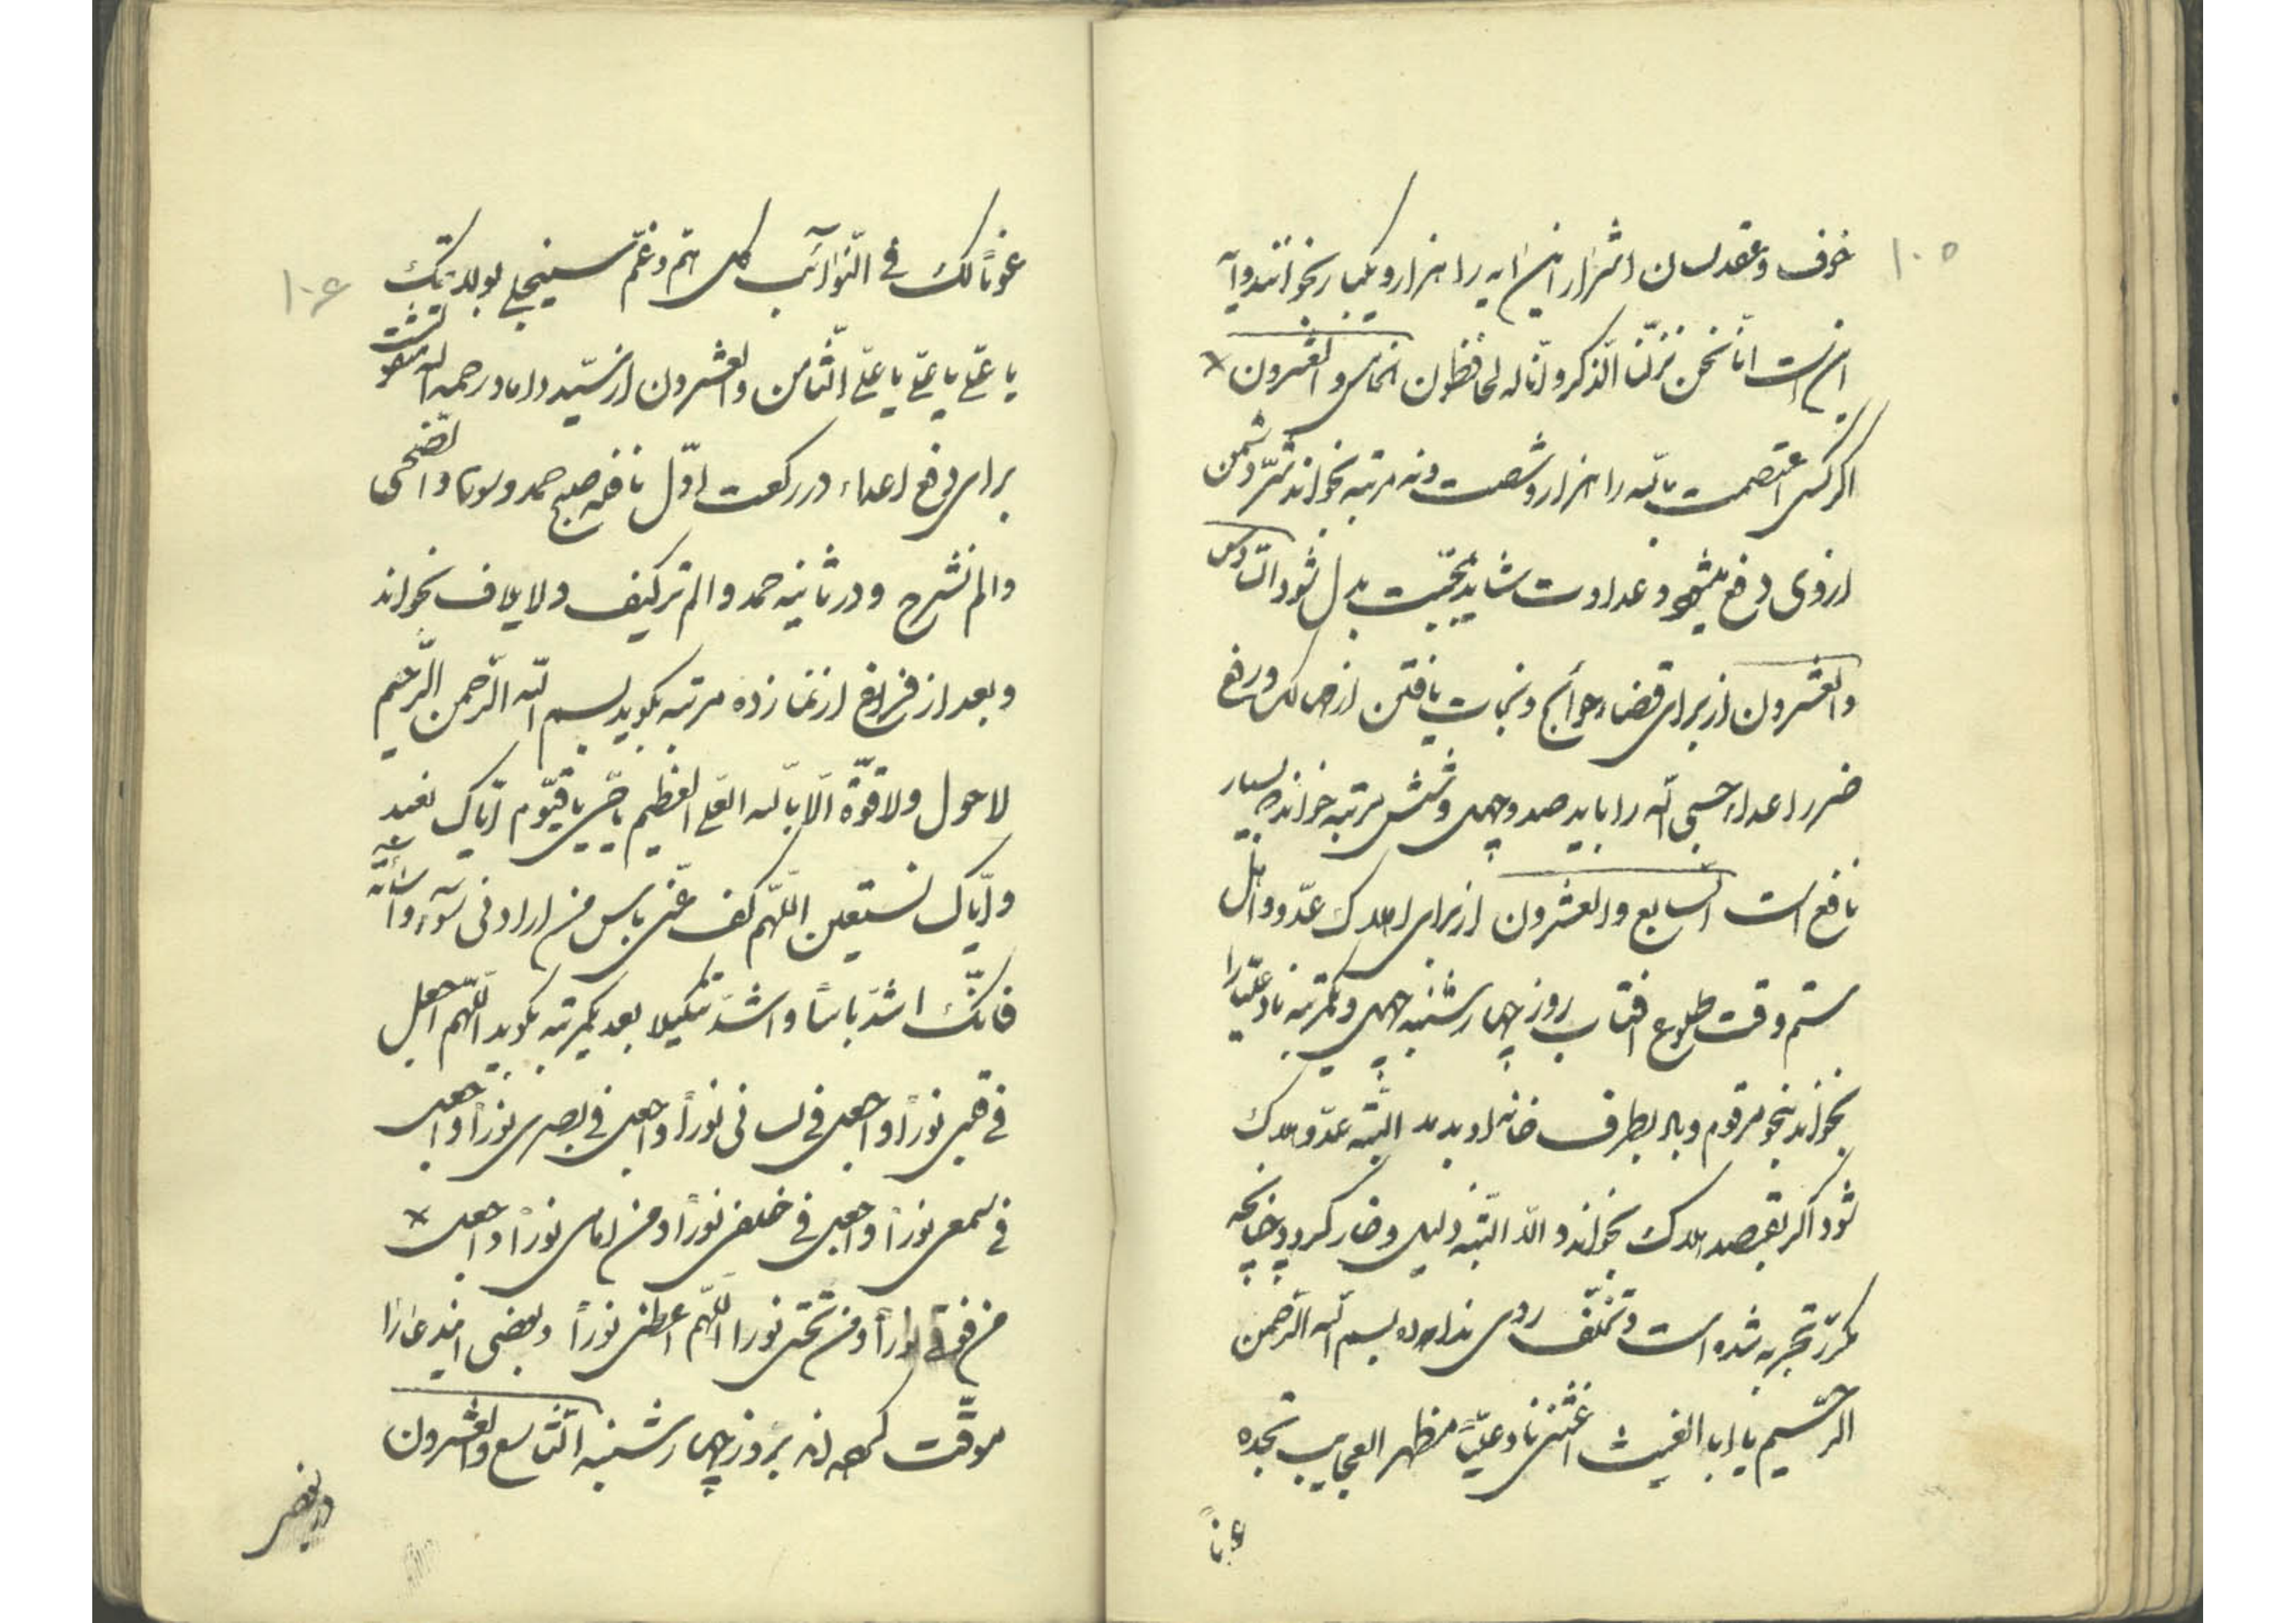 ۱۰۵
خوف و عقد لسان اشرار این ایه را هزار و یکبار بخوانند و آیه
این است انّا نحن نزلنا الذکر و انّا له لحافظون الخامس والعشرون
اگر کسی اعتصمت بالله را هزار و شصت و نه مرتبه بخواند شرّ دشمن
از وی دفع میشود و عداوت شاید بمحبّت بدل شود السّادس
والعشرون از برای قضاء حوائج و نجات یافتن از مهالک و رفع
ضرر اعداء حسبی الله را باید صد و چهل و شش مرتبه خواند که بسیار
نافع است السّابع والعشرون از برای اهلاک عدّو و اهل
ستم وقت طلوع افتاب روز چهارشنبه چهل و یکمرتبه ناد علیّا را
بخواند بنحو مرقوم و باد بطرف خانه او بدمد البتّه عدّو هلاک
شود اگر بقصد هلاک بخواند و الّا البتّه ذلیل و خار گردد چنانچه
مکرّر تجربه شده است و تخلّف روی نداده بسم الله الرّحمن
الرّحیم یا ابا الغیث اغثنی ناد علیّاً مظهر العجایب تجده
عوناً
۱۰۶
عوناً لک فی النّوائب کلّ همّ و غمّ سینجلی بولایتک
یا علیّ یا علیّ یا علیّ الثّامن والعشرون از سیّد داماد رحمه الله منقولست
برای دفع اعداء در رکعت اوّل نافله صبح حمد و سوره والضّحی
و الم نشرح و در ثانیه حمد و الم تر کیف و لایلاف بخواند
و بعد از فراغ از نماز ده مرتبه بگوید بسم الله الرّحمن الرّحیم
لا حول ولا قوّة الّا بالله العلیّ العظیم یا حیّ یا قیّوم ایّاک نعبد
و ایّاک نستعین اللّهم کف عنّی باس من ارادنی بسوء
فانّک اشدّ باساً و اشدّ تنکیلا بعد یکمرتبه بگوید اللّهم اجعل
فی قلبی نوراً و اجعل فی لسانی نوراً و اجعل فی بصری نوراً و اجعل
فی سمعی نوراً و اجعل فی خلفی نوراً و من امامی نوراً و اجعل
من فوقی نوراً و من تحتی نورا اللّهم اعطنی نوراً و بعضی ایندعا را
موقّت کرده اند بروز چهارشنبه التّاسع والعشرون
در بعضی